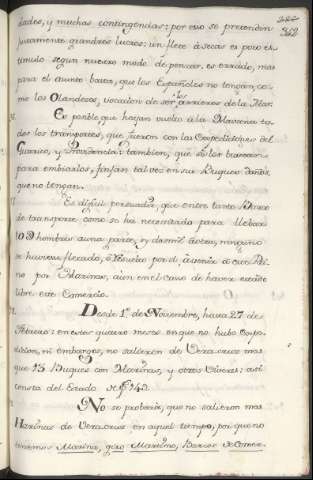 dades, y muchas contingencias; por eso se pretenden
justamente grandes lucros: un flete á secas es poco es=
timulo segun nuestro modo de pensar, es errado, mas
para el asunto basta, que los Españoles no tengan, co=
mo los Olandeses, vocacion de ser los arrieros de la Mar.
Es posible, que hayan vuelto á la
dos los transportes, que fueron con las Expediciones del
Guarico, y Providencia: tambien, que si los buscaron
para embiarlos, finjan tal vez en sus Buques
que no tengan.
Es dificil persuadir, que entre tanto Barco
de transporte como se ha necesitado para llebar
hombres a una parte, y dos mil á otra, ninguno
se huviese fletado, ó
no por Harinas, aun en el caso de haver estado
libre este Comercio.
Desde 1º de Noviembre, hasta 27 de
Febrero: en estos quatro meses en que no hubo Expe=
dicion, ni embargo, no salieron de Veracruz mas
que 13 Buques con Harinas, y otros Viveres: asi
consta del Estado nº 143.
No se probaria, que no salieron mas
Harinas de Veracruz en aquel tiempo, por que no
tenemos Marina, giro Maritimo, Barcos de Comer